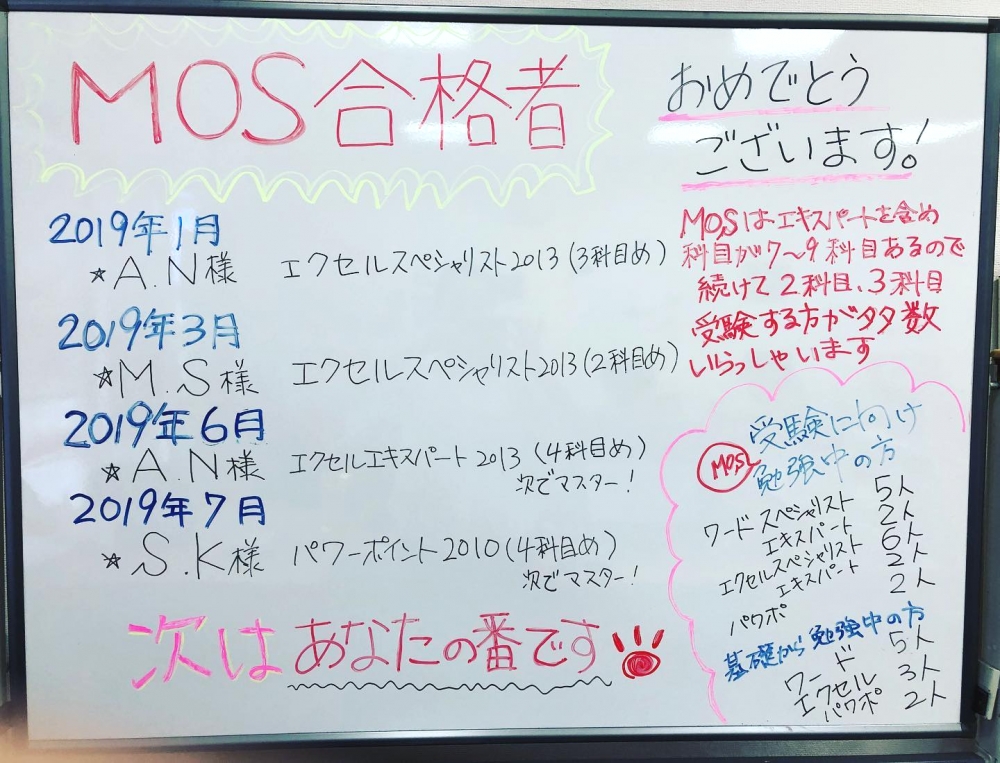 MOS合格者
おめでとう
ございます!
2019年1月
☆A.N様 エクセルスペシャリスト2013(3科目め)
2019年3月
☆M.S様 エクセルスペシャリスト2013(2科目め)
2019年6月
☆A.N様 エクセルエキスパート2013(4科目め)
次でマスター!
2019年7月
☆S.K様 パワーポイント2010(4科目め)
次でマスター!
次はあなたの番です
MOSはエキスパートを含め
科目が7〜9科目あるので
続けて2科目、3科目
受験する方が多数
いらっしゃいます
MOS
受験に向け
勉強中の方
ワードスペシャリスト 5人
エキスパート 2人
エクセルスペシャリスト 6人
エキスパート 2人
パワポ 2人
基礎から勉強中の方
ワード 5人
エクセル 3人
パワポ 2人